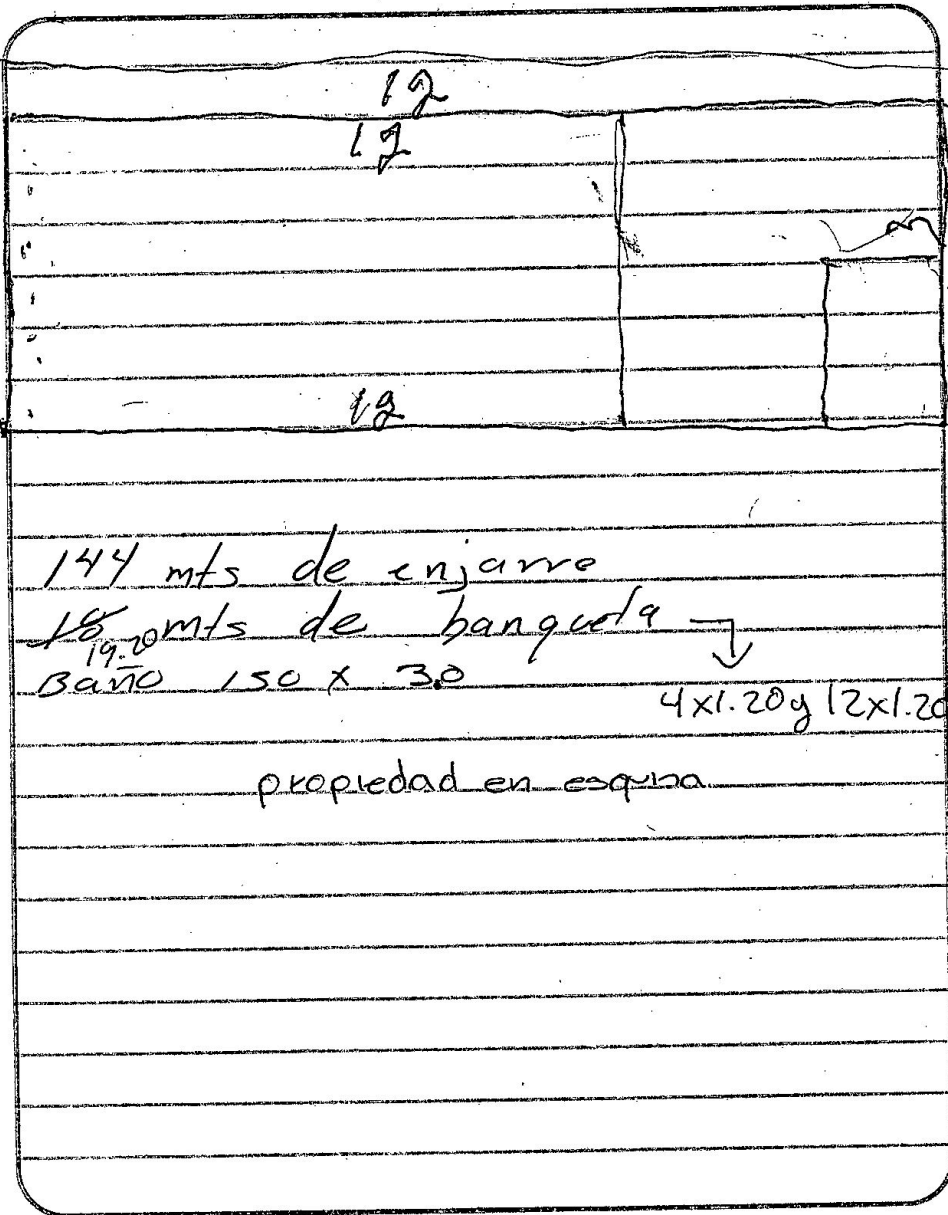 12
12
12
144 mts de enjarre
18 mts de banqueta
19.20
Baño 150 x 3.0
4x1.20 y 12x1.20
propiedad en esquina